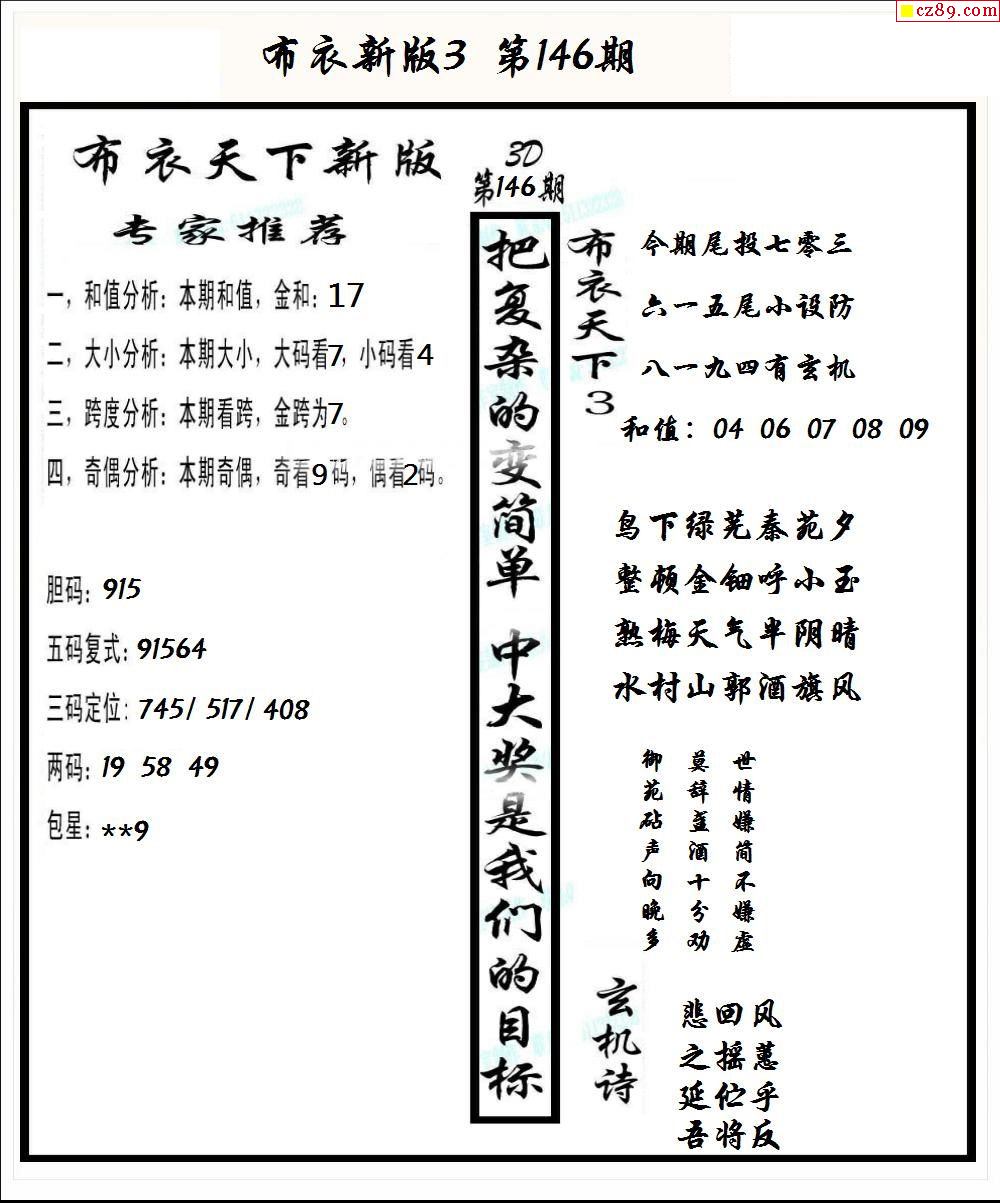 cz89.com
布衣新版3 第146期
布衣天下新版
专家推荐
一，和值分析：本期和值，金和：17
二，大小分析：本期大小，大码看7，小码看4
三，跨度分析：本期看跨，金跨为7。
四，奇偶分析：本期奇偶，奇看9码，偶看2码。
胆码：915
五码复式：91564
三码定位：745/ 517/ 408
两码：19 58 49
包星：**9
3D
第146期
把复杂的变简单 中大奖是我们的目标
布衣天下3
今期尾投七零三
六一五尾小设防
八一九四有玄机
和值：04 06 07 08 09
鸟下绿芜秦苑夕
整顿金钿呼小玉
熟梅天气半阴晴
水村山郭酒旗风
世情嫌简不嫌虚
莫辞盏酒十分劝
御苑砧声向晚多
玄机诗
悲回风
之摇蕙
延伫乎
吾将反